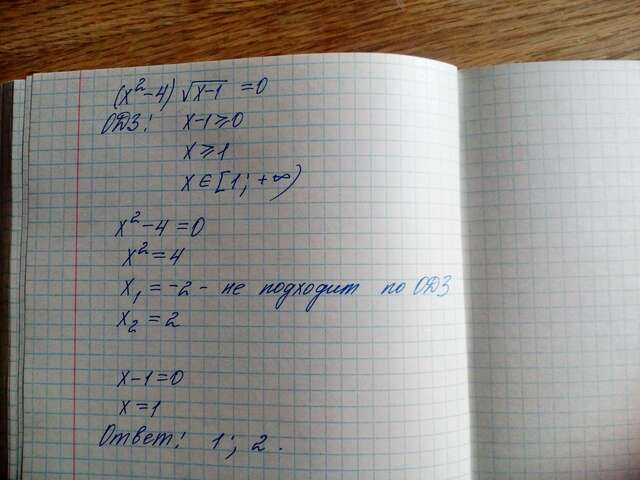 (x²-4)√x-1 = 0
ОДЗ: x-1⩾0
x⩾1
x∈[1; +∞)
x²-4=0
x²=4
x₁=-2 - не подходит по ОДЗ
x₂=2
x-1=0
x=1
Ответ: 1; 2.